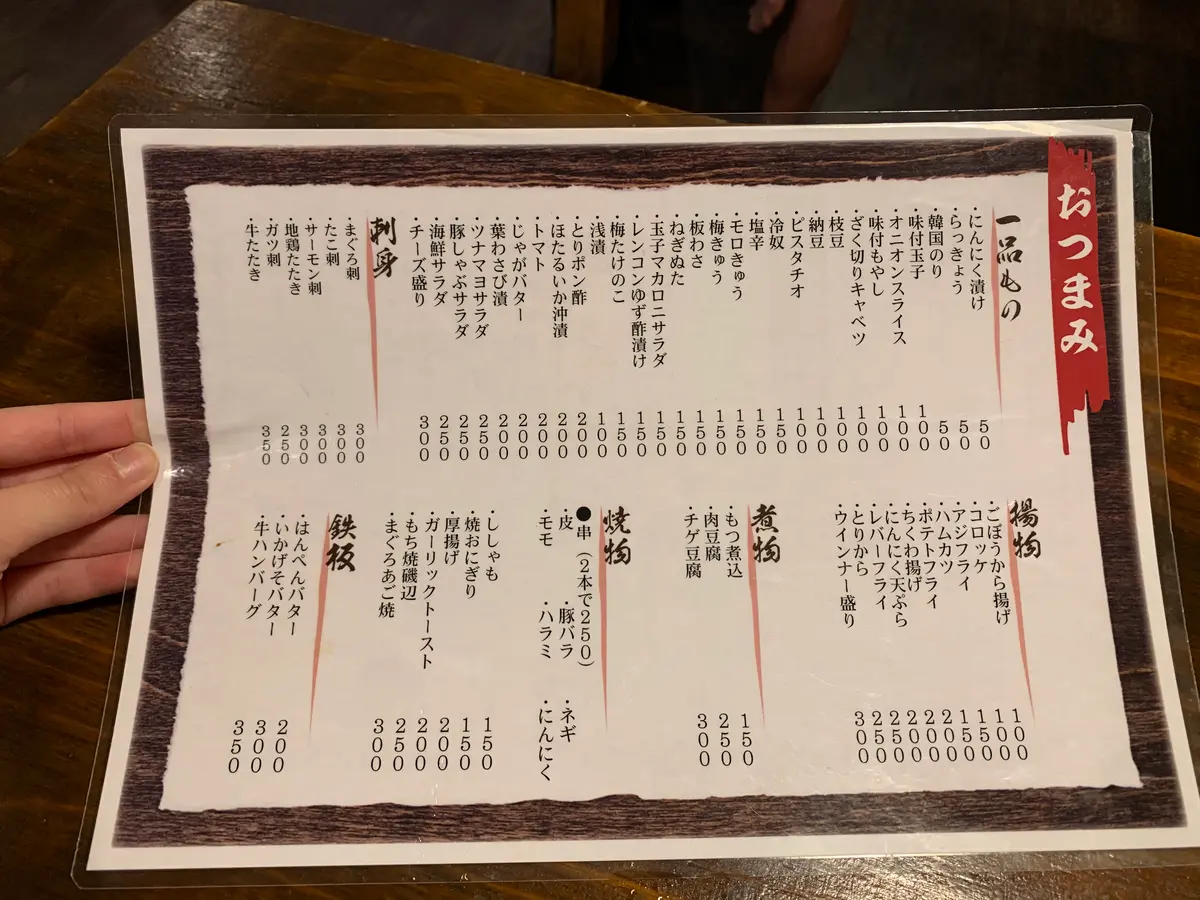 おつまみ
一品もの
・にんにく漬け 50
・らっきょう 50
・韓国のり 50
・味付玉子 100
・オニオンスライス 100
・味付もやし 100
・ざく切りキャベツ 100
・枝豆 100
・納豆 100
・ピスタチオ 100
・冷奴 150
・塩辛 150
・モロきゅう 150
・梅きゅう 150
・板わさ 150
・ねぎぬた 150
・玉子マカロニサラダ 150
・レンコンゆず酢漬け 150
・梅たけのこ 150
・浅漬 100
・とりポン酢 200
・ほたるいか沖漬 200
・トマト 200
・じゃがバター 200
・葉わさび漬 200
・ツナマヨサラダ 250
・豚しゃぶサラダ 250
・海鮮サラダ 250
・チーズ盛り 300
刺身
・まぐろ刺 300
・たこ刺 300
・サーモン刺 300
・地鶏たたき 300
・ガツ刺 250
・牛たたき 350
揚物
・ごぼうから揚げ 100
・コロッケ 100
・アジフライ 150
・ハムカツ 150
・ポテトフライ 200
・ちくわ揚げ 200
・にんにく天ぷら 200
・レバーフライ 250
・とりから 250
・ウインナー盛り 300
煮物
・もつ煮込 150
・肉豆腐 250
・チゲ豆腐 300
焼物
●串（2本で250）
・皮 ・豚バラ ・ネギ
・モモ ・ハラミ ・にんにく
・ししゃも 150
・焼おにぎり 150
・厚揚げ 200
・ガーリックトースト 200
・もち焼磯辺 250
・まぐろあご焼 300
鉄板
・はんぺんバター 200
・いかげそバター 300
・牛ハンバーグ 350